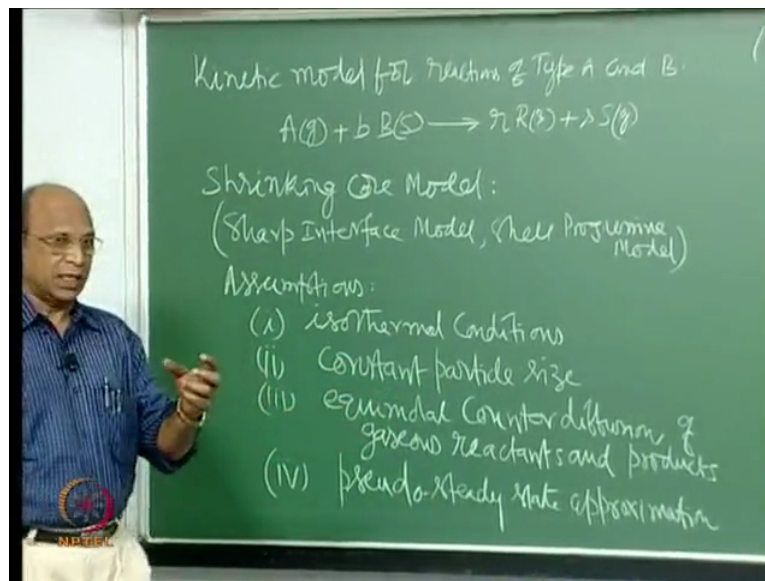 Kinetic model for reactions of Type A and B.
A(g) + b B(s) → r R(s) + s S(g)
Shrinking Core Model:
(Sharp Interface Model, Shell Progressive
Model)
Assumptions:
(i) isothermal conditions
(ii) constant particle size
(iii) equimolal Counter diffusion of
gaseous reactants and products
(iv) pseudo-steady state approximation
NPTEL